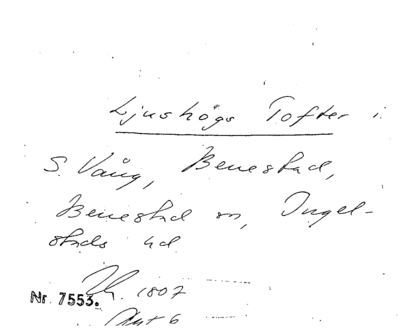 Ljushögs Tofter i
S. Vång, Benestad,
Benestad sn, Ingel-
stads hd
Nr 7553. 1807
Akt 6